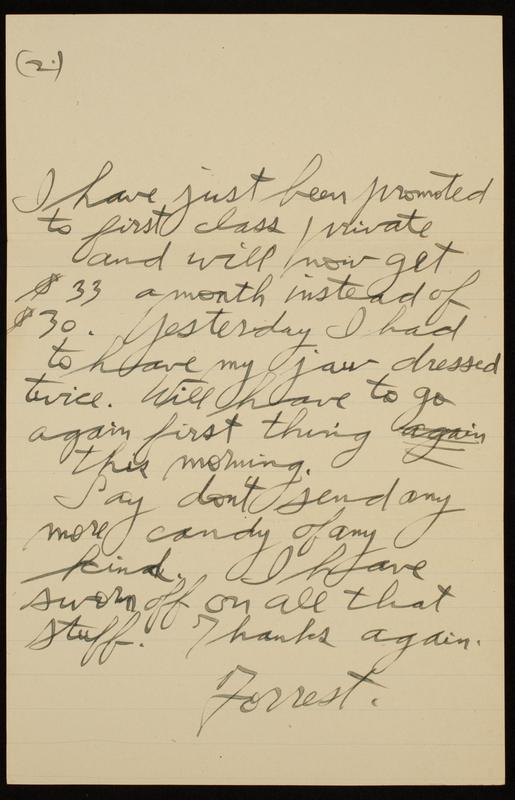 (2.)
I have just been promoted
to first class private
and will now get
$33 a month instead of
$30. Yesterday I had
to have my jaw dressed
twice. Will have to go
again first thing again
this morning.
Say don't send any
more candy of any
kind. I have
sworn off on all that
stuff. Thanks again.
Forrest.